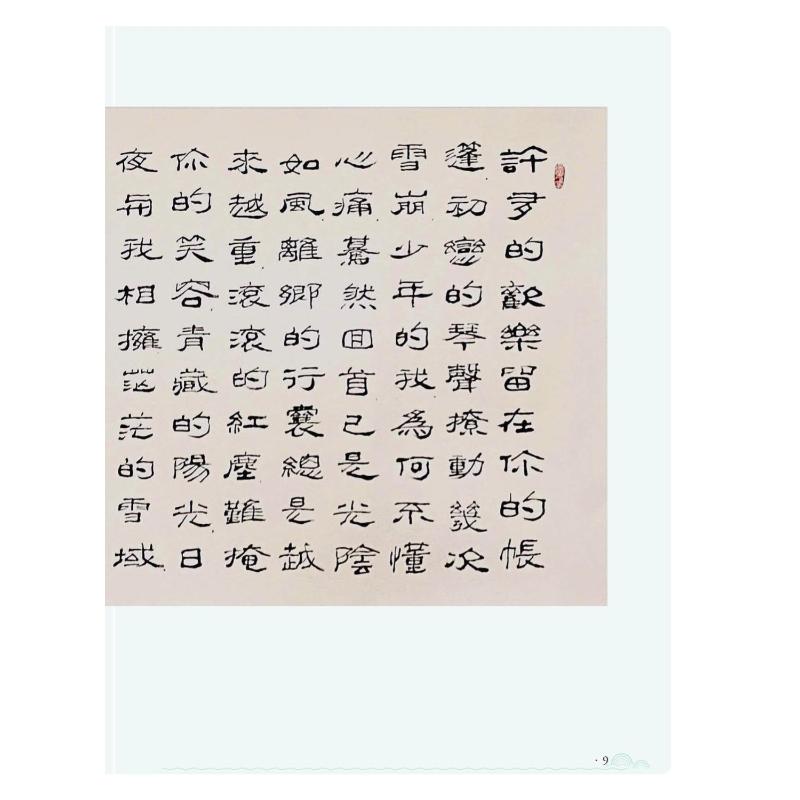 許多的歡樂留在你的帳
蓬初戀的琴聲撩動幾次
雪崩少年的我爲何不懂
心痛驀然回首已是光陰
如風離鄉的行囊總是越
來越重滾滾的紅塵難掩
你的笑容青藏的陽光日
夜与我相擁茫茫的雪域
· 9